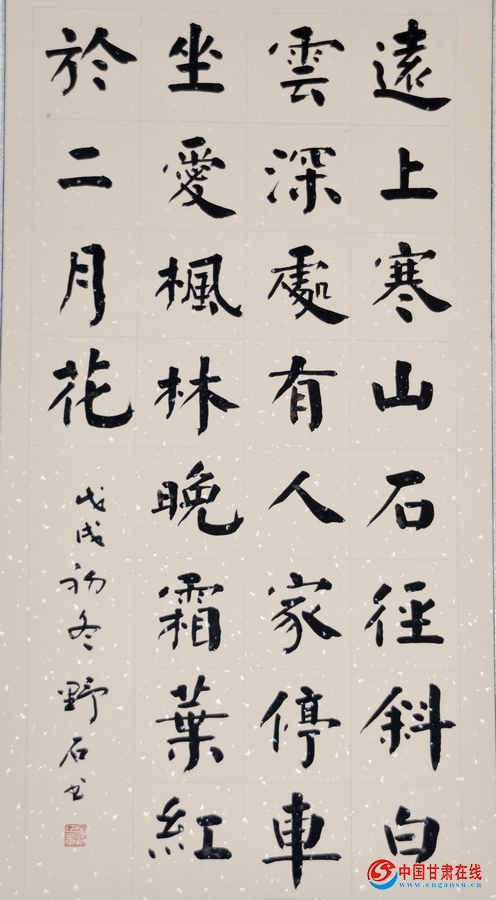 遠上寒山石徑斜白
雲深處有人家停車
坐愛楓林晚霜葉紅
於二月花
戊戌初冬野石书
中国甘肃在线
www.cngansu.cn